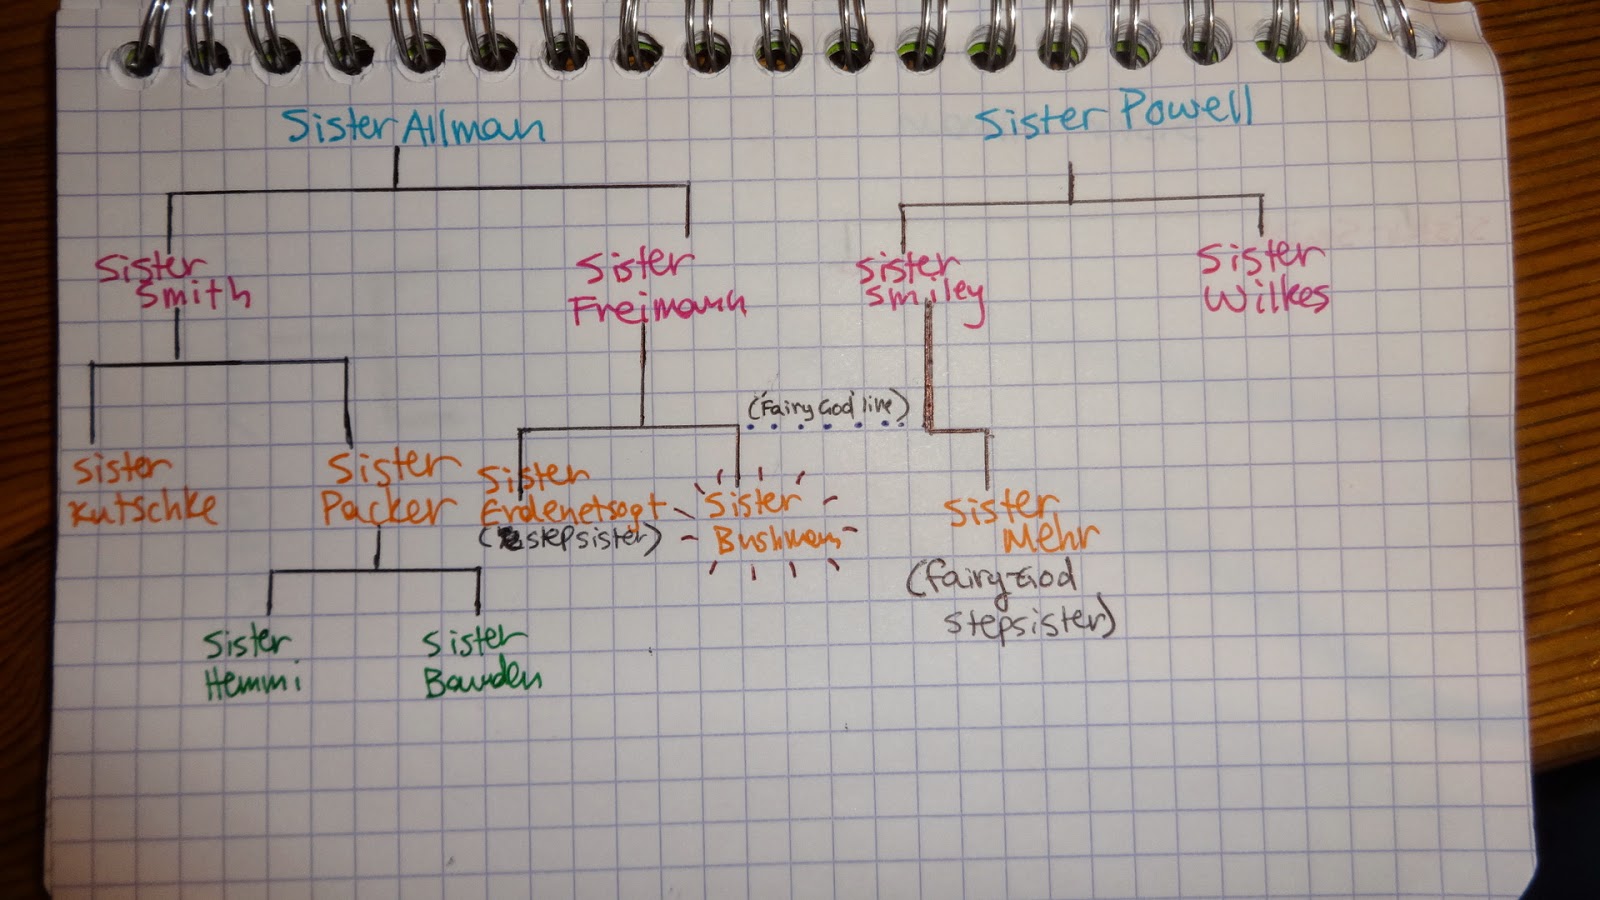 Sister Allman
Sister Powell
Sister
Smith
Sister
Freimann
Sister
Smiley
Sister
Wilkes
(Fairy God line)
Sister
Kutschke
Sister
Packer
Sister
Erdenetsogt
(stepsister)
Sister
Bushman
Sister
Mehr
(Fairy-God
stepsister)
Sister
Hemmi
Sister
Bowden